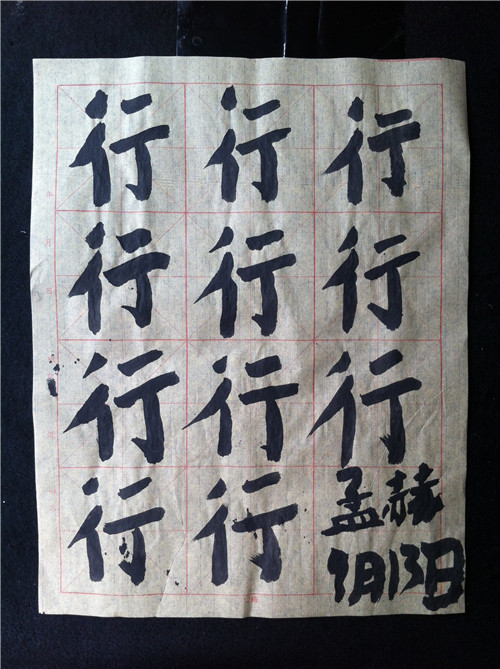 行行行
行行行
行行行
行行孟赫
1月13日